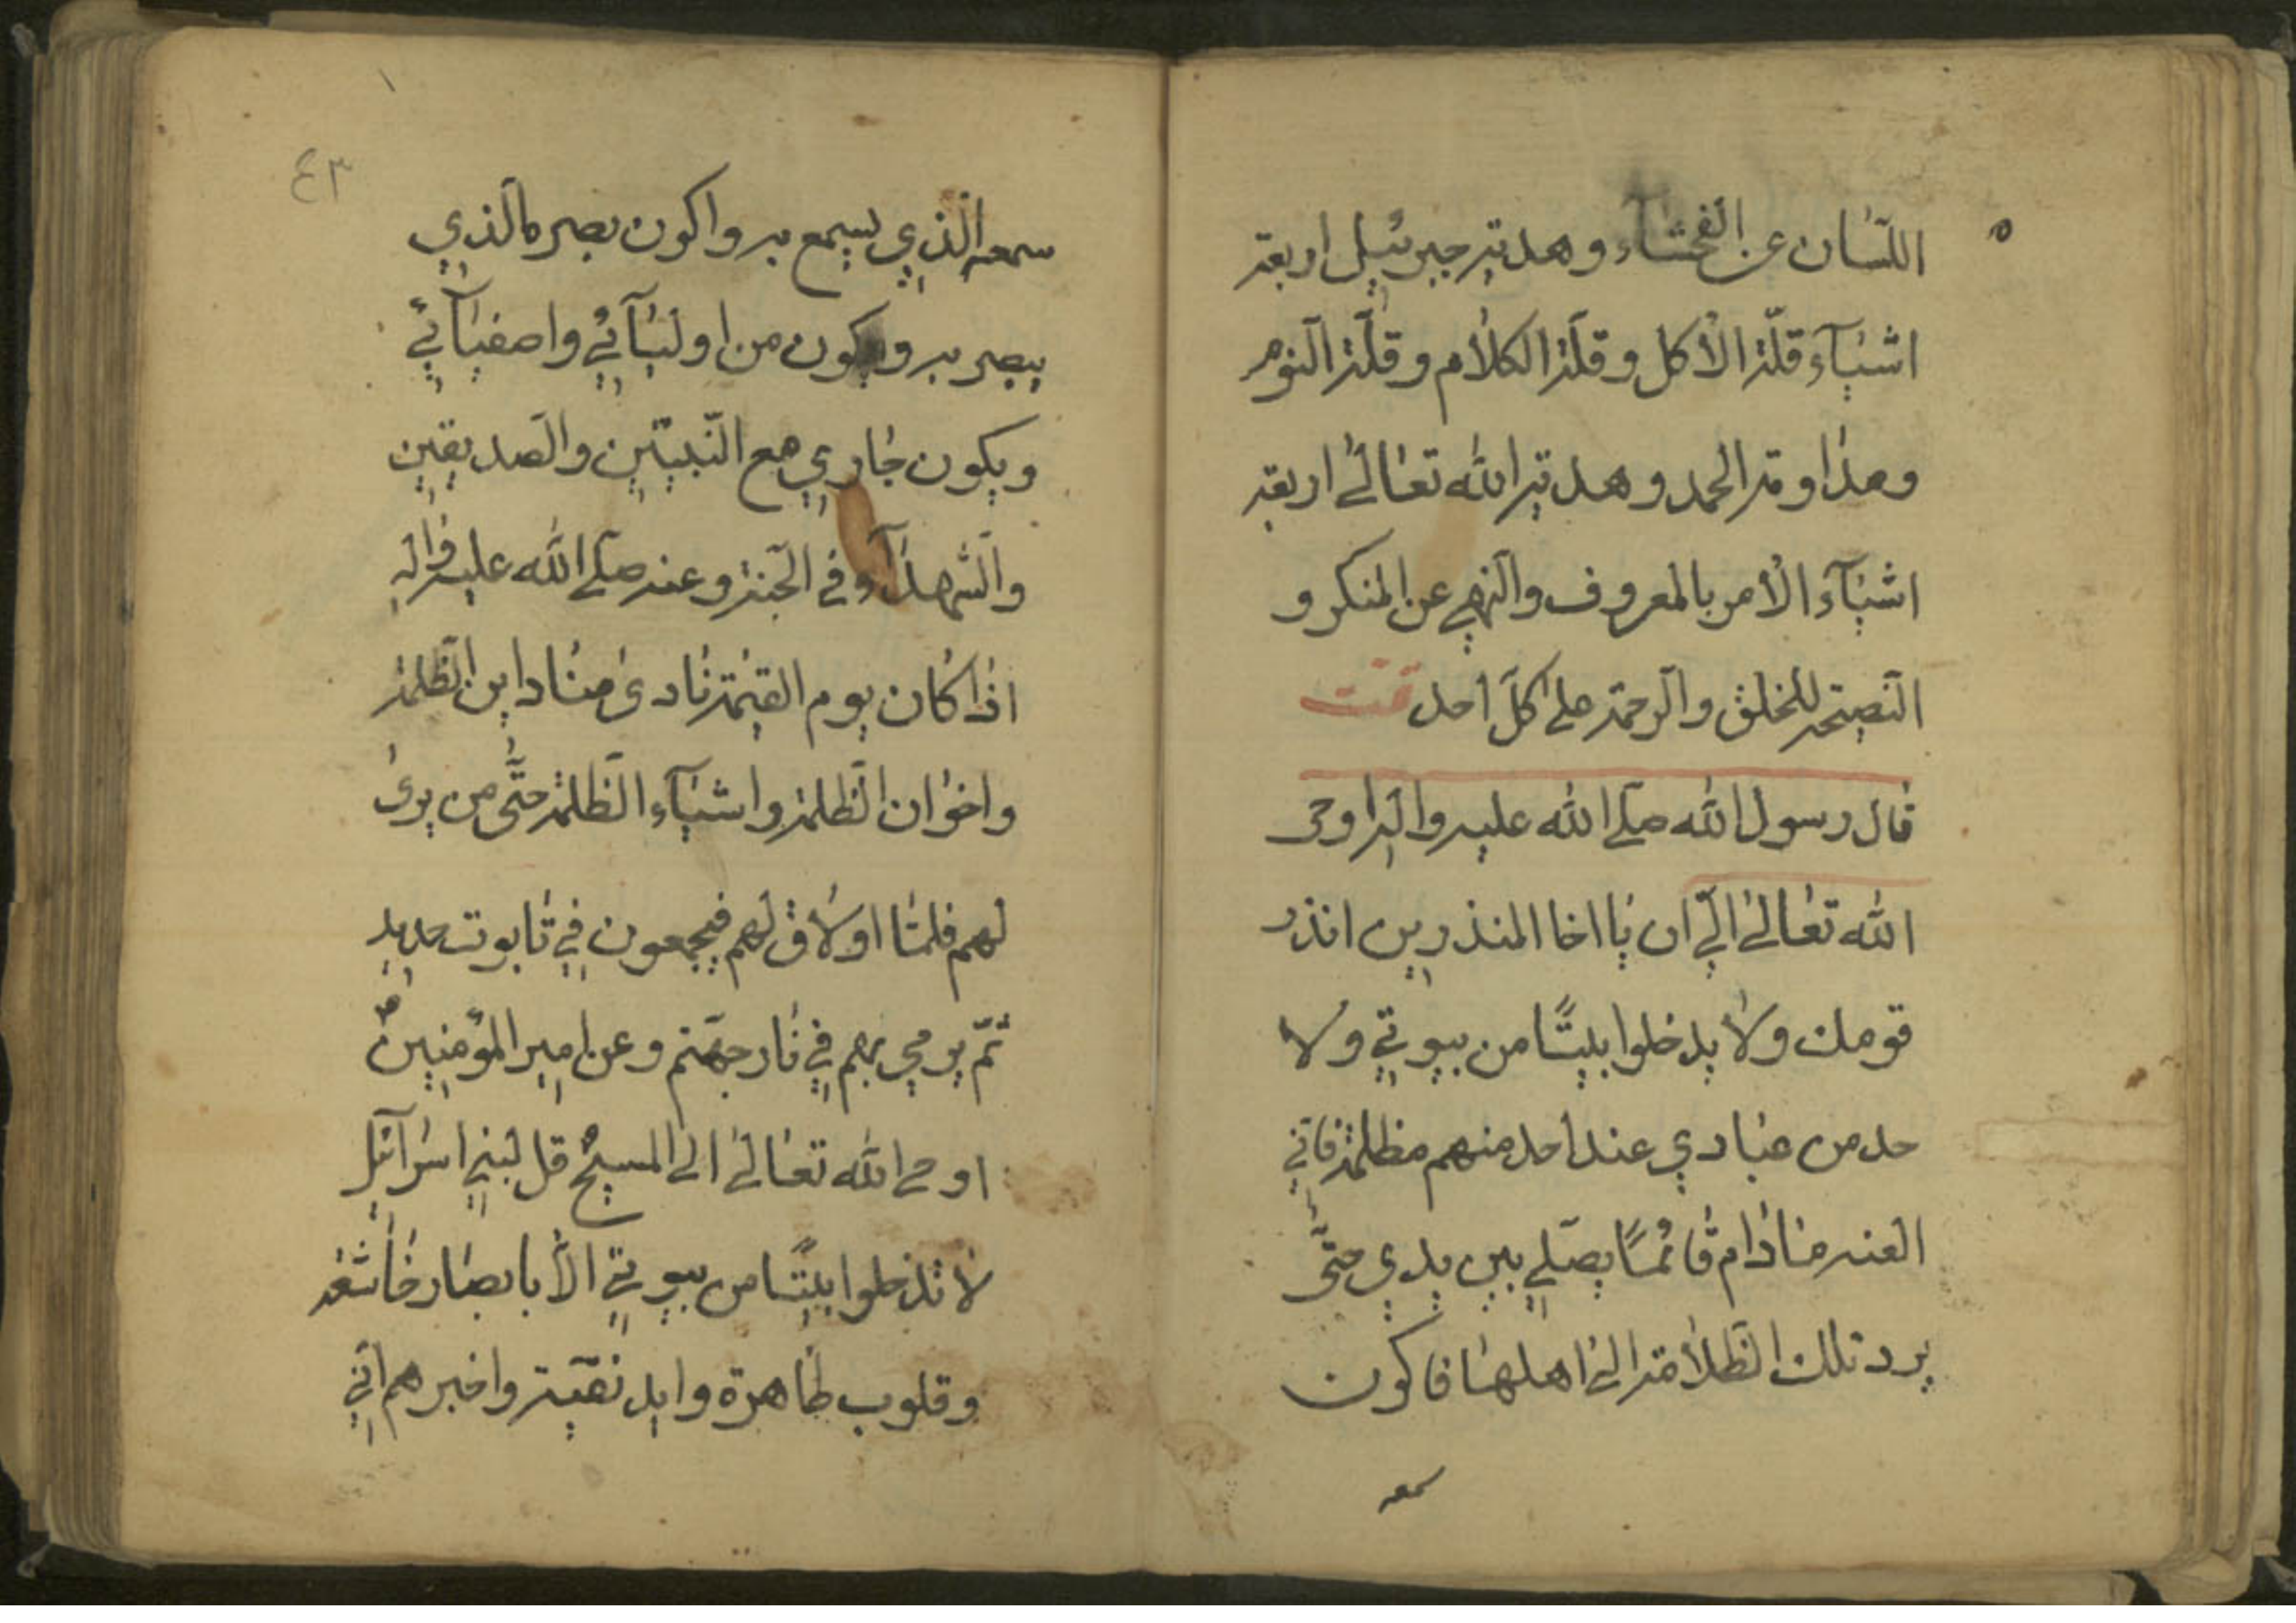 اللّسان عن الفحشآء وهديّة جبرئيل اربعة
اشيآء قلّة الأكل وقلّة الكلام وقلّة النّوم
ومداومة الحمد وهديّة الله تعالى اربعة
اشيآء الأمر بالمعروف والنّهي عن المنكر و
النّصيحة للخلق والرّحمة على كلّ احد تمّت
قال رسول الله صلّى الله عليه واله اوحى
الله تعالى اليّ ان يا اخا المنذرين انذر
قومك ولا يدخلوا بيتًا من بيوتي ولا
حد من عبادي عند احد منهم مظلمة فانّي
العنه مادام قائمًا يصلّي بين يدي حتّى
يرد تلك الظّلامة الى اهلها فاكون
سمعه
٤٣
سمعه الّذي يسمع به واكون بصره الّذي
يبصر به ويكون من اوليآئي واصفيآئي
ويكون جاري مع النّبيّين والصّديقين
والشّهدآء في الجنّة وعنه صلّى الله عليه واله
اذا كان يوم القيمة نادى مناد اين الظّلمة
واخوان الظّلمة واشبآء الظّلمة حتّى من يرى
لهم قلما اولاق لهم فيجمعون في تابوت حديد
ثمّ يرمي بهم في نار جهنّم وعن امير المؤمنين ع
اوحى الله تعالى الى المسيح ع قل لبني اسرآئيل
لا تدخلوا بيتًا من بيوتي الّا بابصار خاشعة
وقلوب طاهرة وايد نقيّة واخبرهم انّي